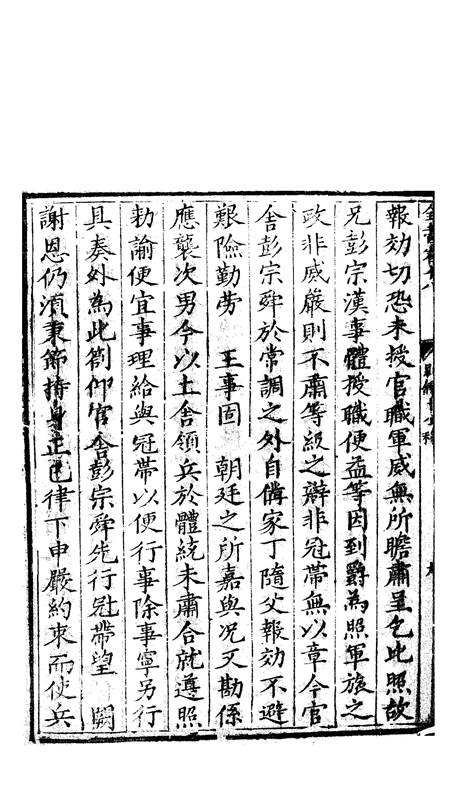 報効切恐未授官職軍威無所瞻肅呈乞比照故
兄彭宗漢事體授職便益等因到爵為照軍旅之
政非威嚴則不肅等級之辯非冠帶無以章今官
舍彭宗舜於常調之外自備家丁隨父報効不避
艱險勤勞 王事固 朝廷之所嘉與况又勘係
應襲次男今以土舍領兵於體統未肅合就遵照
勑諭便宜事理給與冠帶以便行事除事寧另行
具奏外為此劄仰官舍彭宗舜先行冠帶望 闕
謝恩仍須秉節持身正己律下申嚴約束而使兵